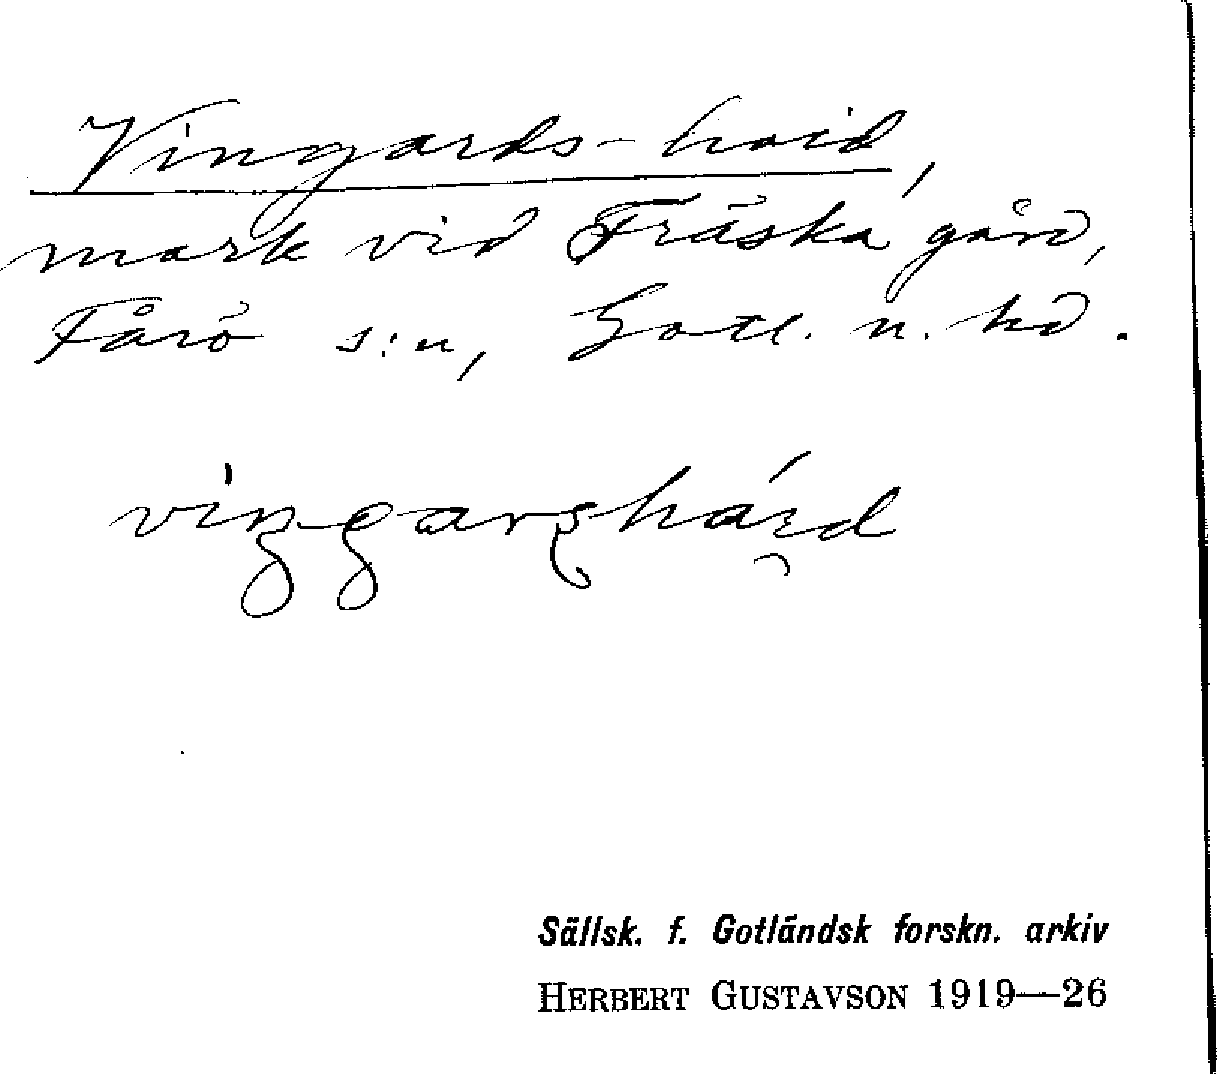 Vingards-haid,
mark vid Fräska gård,
Fårö s:n, Gotl. n. hd.
Sällsk. f. Gotländsk forskn. arkiv
HERBERT GUSTAVSON 1919—26